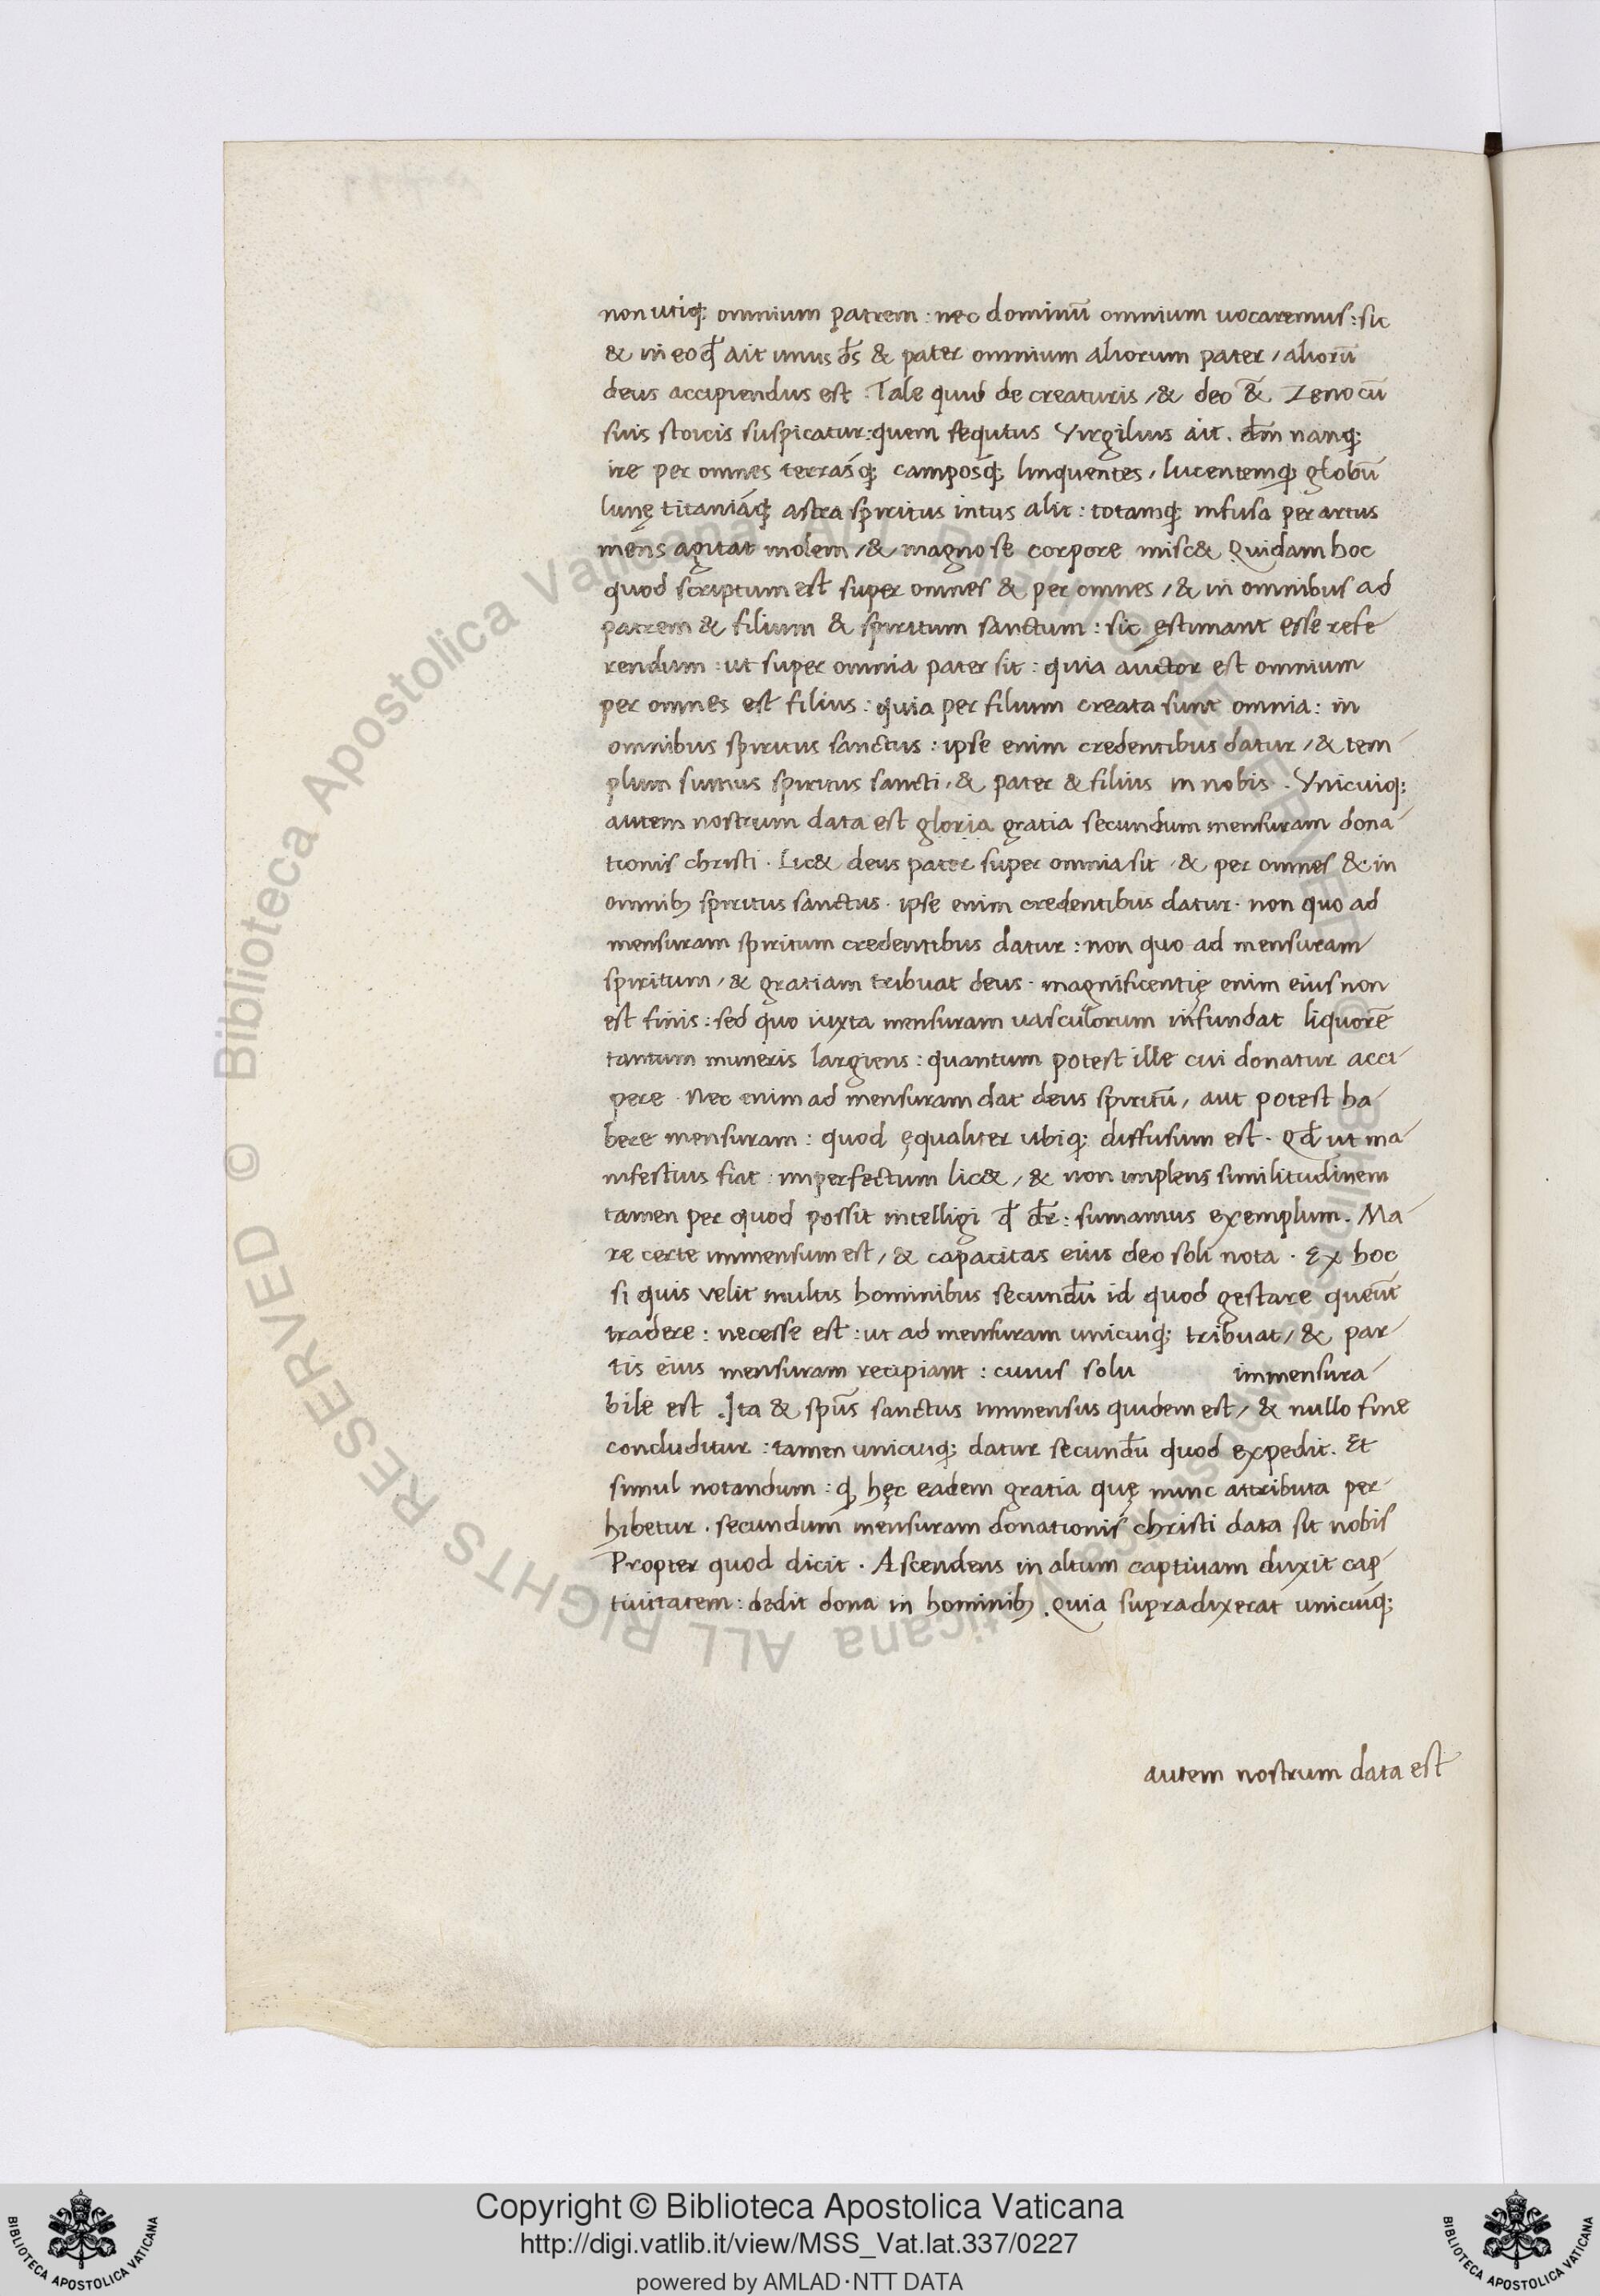 non utiq; omnium patrem : nec dominū omnium uocaremus : sic
& in eo qđ ait unus d̄s & pater omnium aliorum pater / aliorū
deus accipiendus est . Tale quid de creaturis / & deo &̄ Zeno cū
suis stoicis suspicatur : quem sequtus Virgilius ait . dm̄ nanq;
ire per omnes terrasq; camposq; linquentes / lucentemq; globū
lunę titaniáq; astra spiritus intus alit : totamq; infusa per artus
mens agitat molem / & magno se corpore misc& Quidam hoc
quod scriptum est super omnes & per omnes / & in omnibus ad
patrem & filium & spiritum sanctum : sic ęstimant esse refe
rendum : ut super omnia pater sit : quia auctor est omnium
per omnes est filius : quia per filium creata sunt omnia : in
omnibus spiritus sanctus : ipse enim credentibus datur / & tem-
plum sumus spiritus sancti / & pater & filius in nobis . Vnicuiq;
autem nostrum data est gloria gratia secundum mensuram dona-
tionis christi . Lic& deus pater super omnia sit / & per omnes & in
omnib; spiritus sanctus . ipse enim credentibus datur . non quo ad
mensuram spiritum credentibus datur : non quo ad mensuram
spiritum / & gratiam tribuat deus . magnificentię enim eius non
est finis : sed quo iuxta mensuram uasculorum infundat liquorē
tantum muneris largiens : quantum potest ille cui donatur acci-
pere . Nec enim ad mensuram dat deus spiritū / aut potest ha-
bere mensuram : quod ęqualiter ubiq; diffusum est . Qđ ut ma-
nifestius fiat : imperfectum lic& / & non implens similitudinem
tamen per quod possit intelligi qđ dr̄ : sumamus exemplum . Ma-
re certe immensum est / & capacitas eius deo soli nota . Ex hoc
si quis velit multis hominibus secundū id quod gestare queūt
tradere : necesse est : ut ad mensuram unicuiq; tribuat / & par-
tis eius mensuram recipiant : cuius solu immensura-
bile est . Ita & spūs sanctus immensus quidem est / & nullo fine
conduditur : tamen unicuiq; datur secundū quod expedit . Et
simul notandum : q; hęc eadem gratia quę nunc attributa per-
hibetur . secundum mensuram donationis christi data sit nobis
Propter quod dicit . Ascendens in altum captiuam duxit cap-
tiuitatem : dedit dona in hominib; . Quia supra dixerat unicuiq;
autem nostrum data est
Biblioteca Apostolica Vaticana ALL RIGHTS RESERVED ©
Biblioteca Apostolica Vaticana ALL RIGHTS RESERVED ©
Copyright © Biblioteca Apostolica Vaticana
http://digi.vatlib.it/view/MSS_Vat.lat.337/0227
powered by AMLAD·NTT DATA
BIBLIOTECA APOSTOLICA VATICANA
BIBLIOTECA APOSTOLICA VATICANA